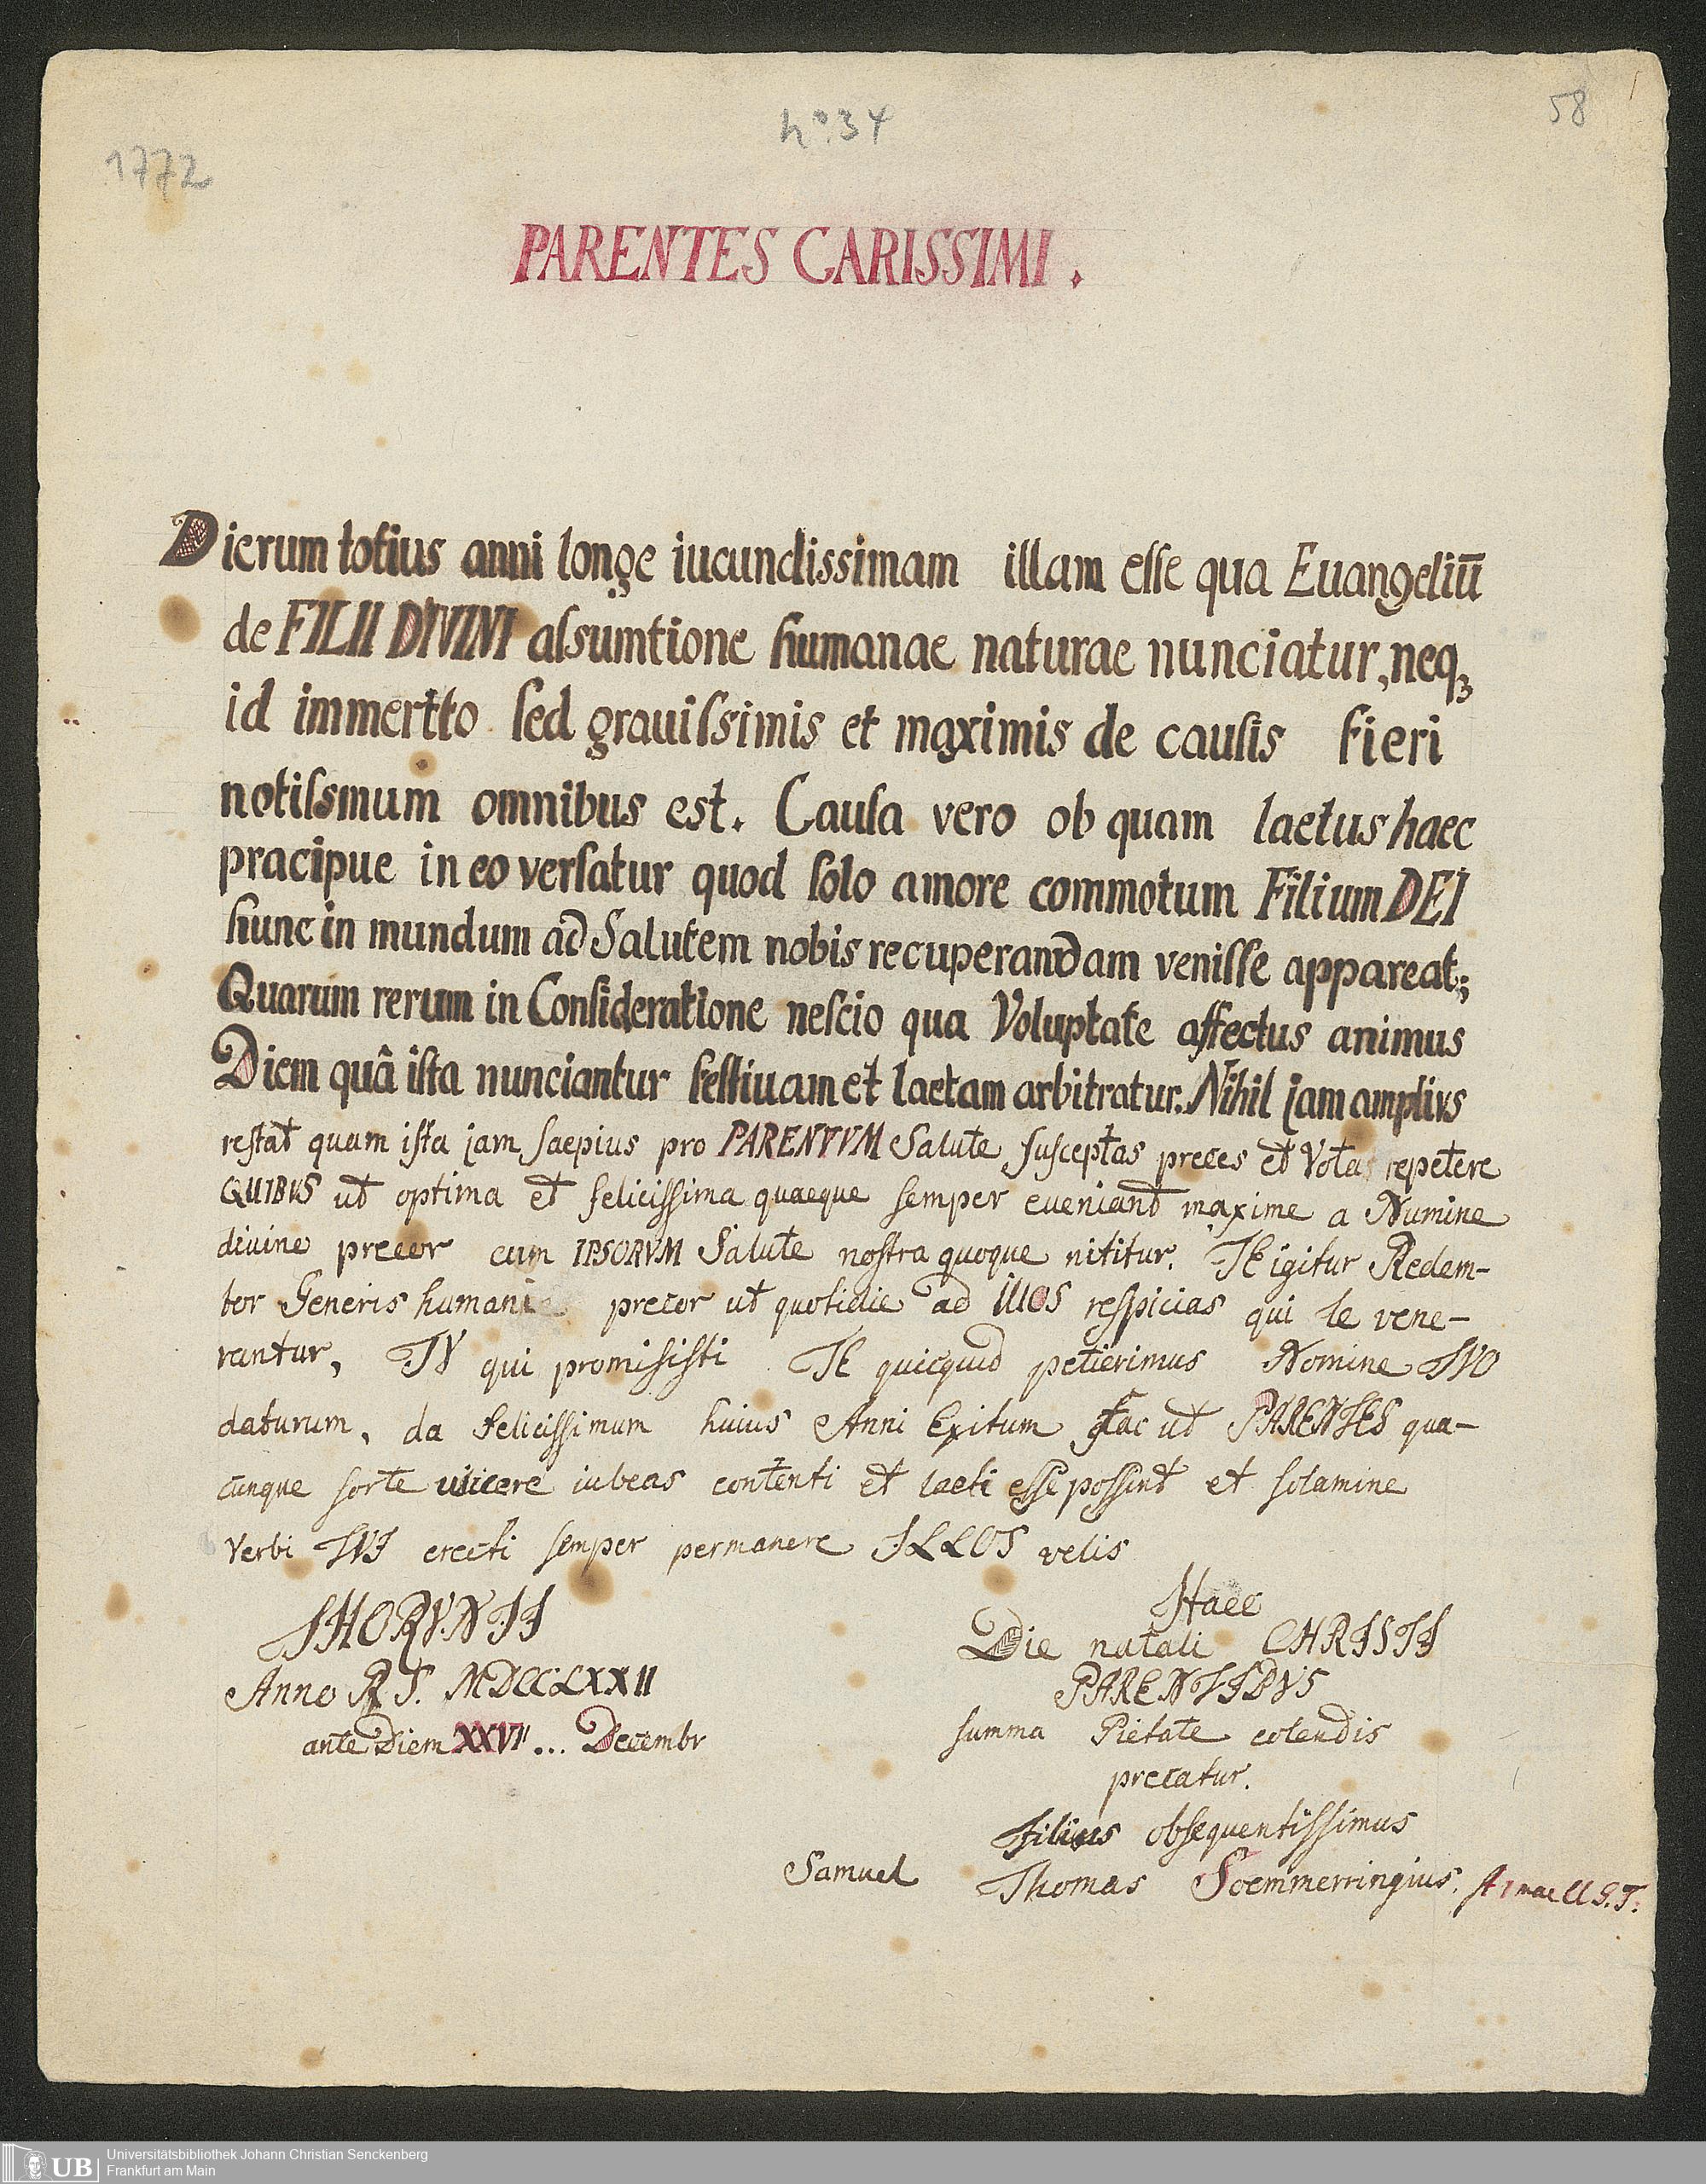 58
n° 34
1772
PARENTES CARISSIMI.
Dierum totius anni longe iucundissimam illam esse qua Euangeliū
de FILII DIVINI alsumtione humanae naturae nunciatur, neqꝫ
id immertto sed grauissimis et maximis de causis fieri
notissmum omnibus est. Causa vero ob quam laetus haec
pracipue in eo versatur quod solo amore commotum Filium DEI
hunc in mundum ad Salutem nobis recuperandam venisse appareat;
Quarum rerum in Consideratione nescio qua Voluptate affectus animus
Diem quâ ista nunciantur festiuam et laetam arbitratur. Nihil jam amplivs
restat quam ista jam saepius pro PARENTVM Salute susceptas preces et Vota repetere
QUIBVS ut optima et felicissima quaeque semper eueniant maxime a Numine
diuine precor cum IPSORVM Salute nostra quoque nititur. TE igitur Redem-
tor Generis humani precor ut quotidie ad IllOS respicias qui te vene-
rantur, TV qui promisisti TE quicquid petierimus Nomine TVO
daturum, da felicissimum huius Anni Exitum fac ut PARENTES qua-
cunque sorte uiicere iubeas contenti et laeti esse possint et solamine
Verbi TVI erecti semper permanere ILLOS velis
THORVNII
Anno R S. MDCCLXXII
ante Diem XXVI... Decembr
Haec
Die natali CHRISTI
PARENTIBVS
summa Pietate colendis
precatur.
Filius obsequentissimus
Samuel Thomas Soemmerringius.